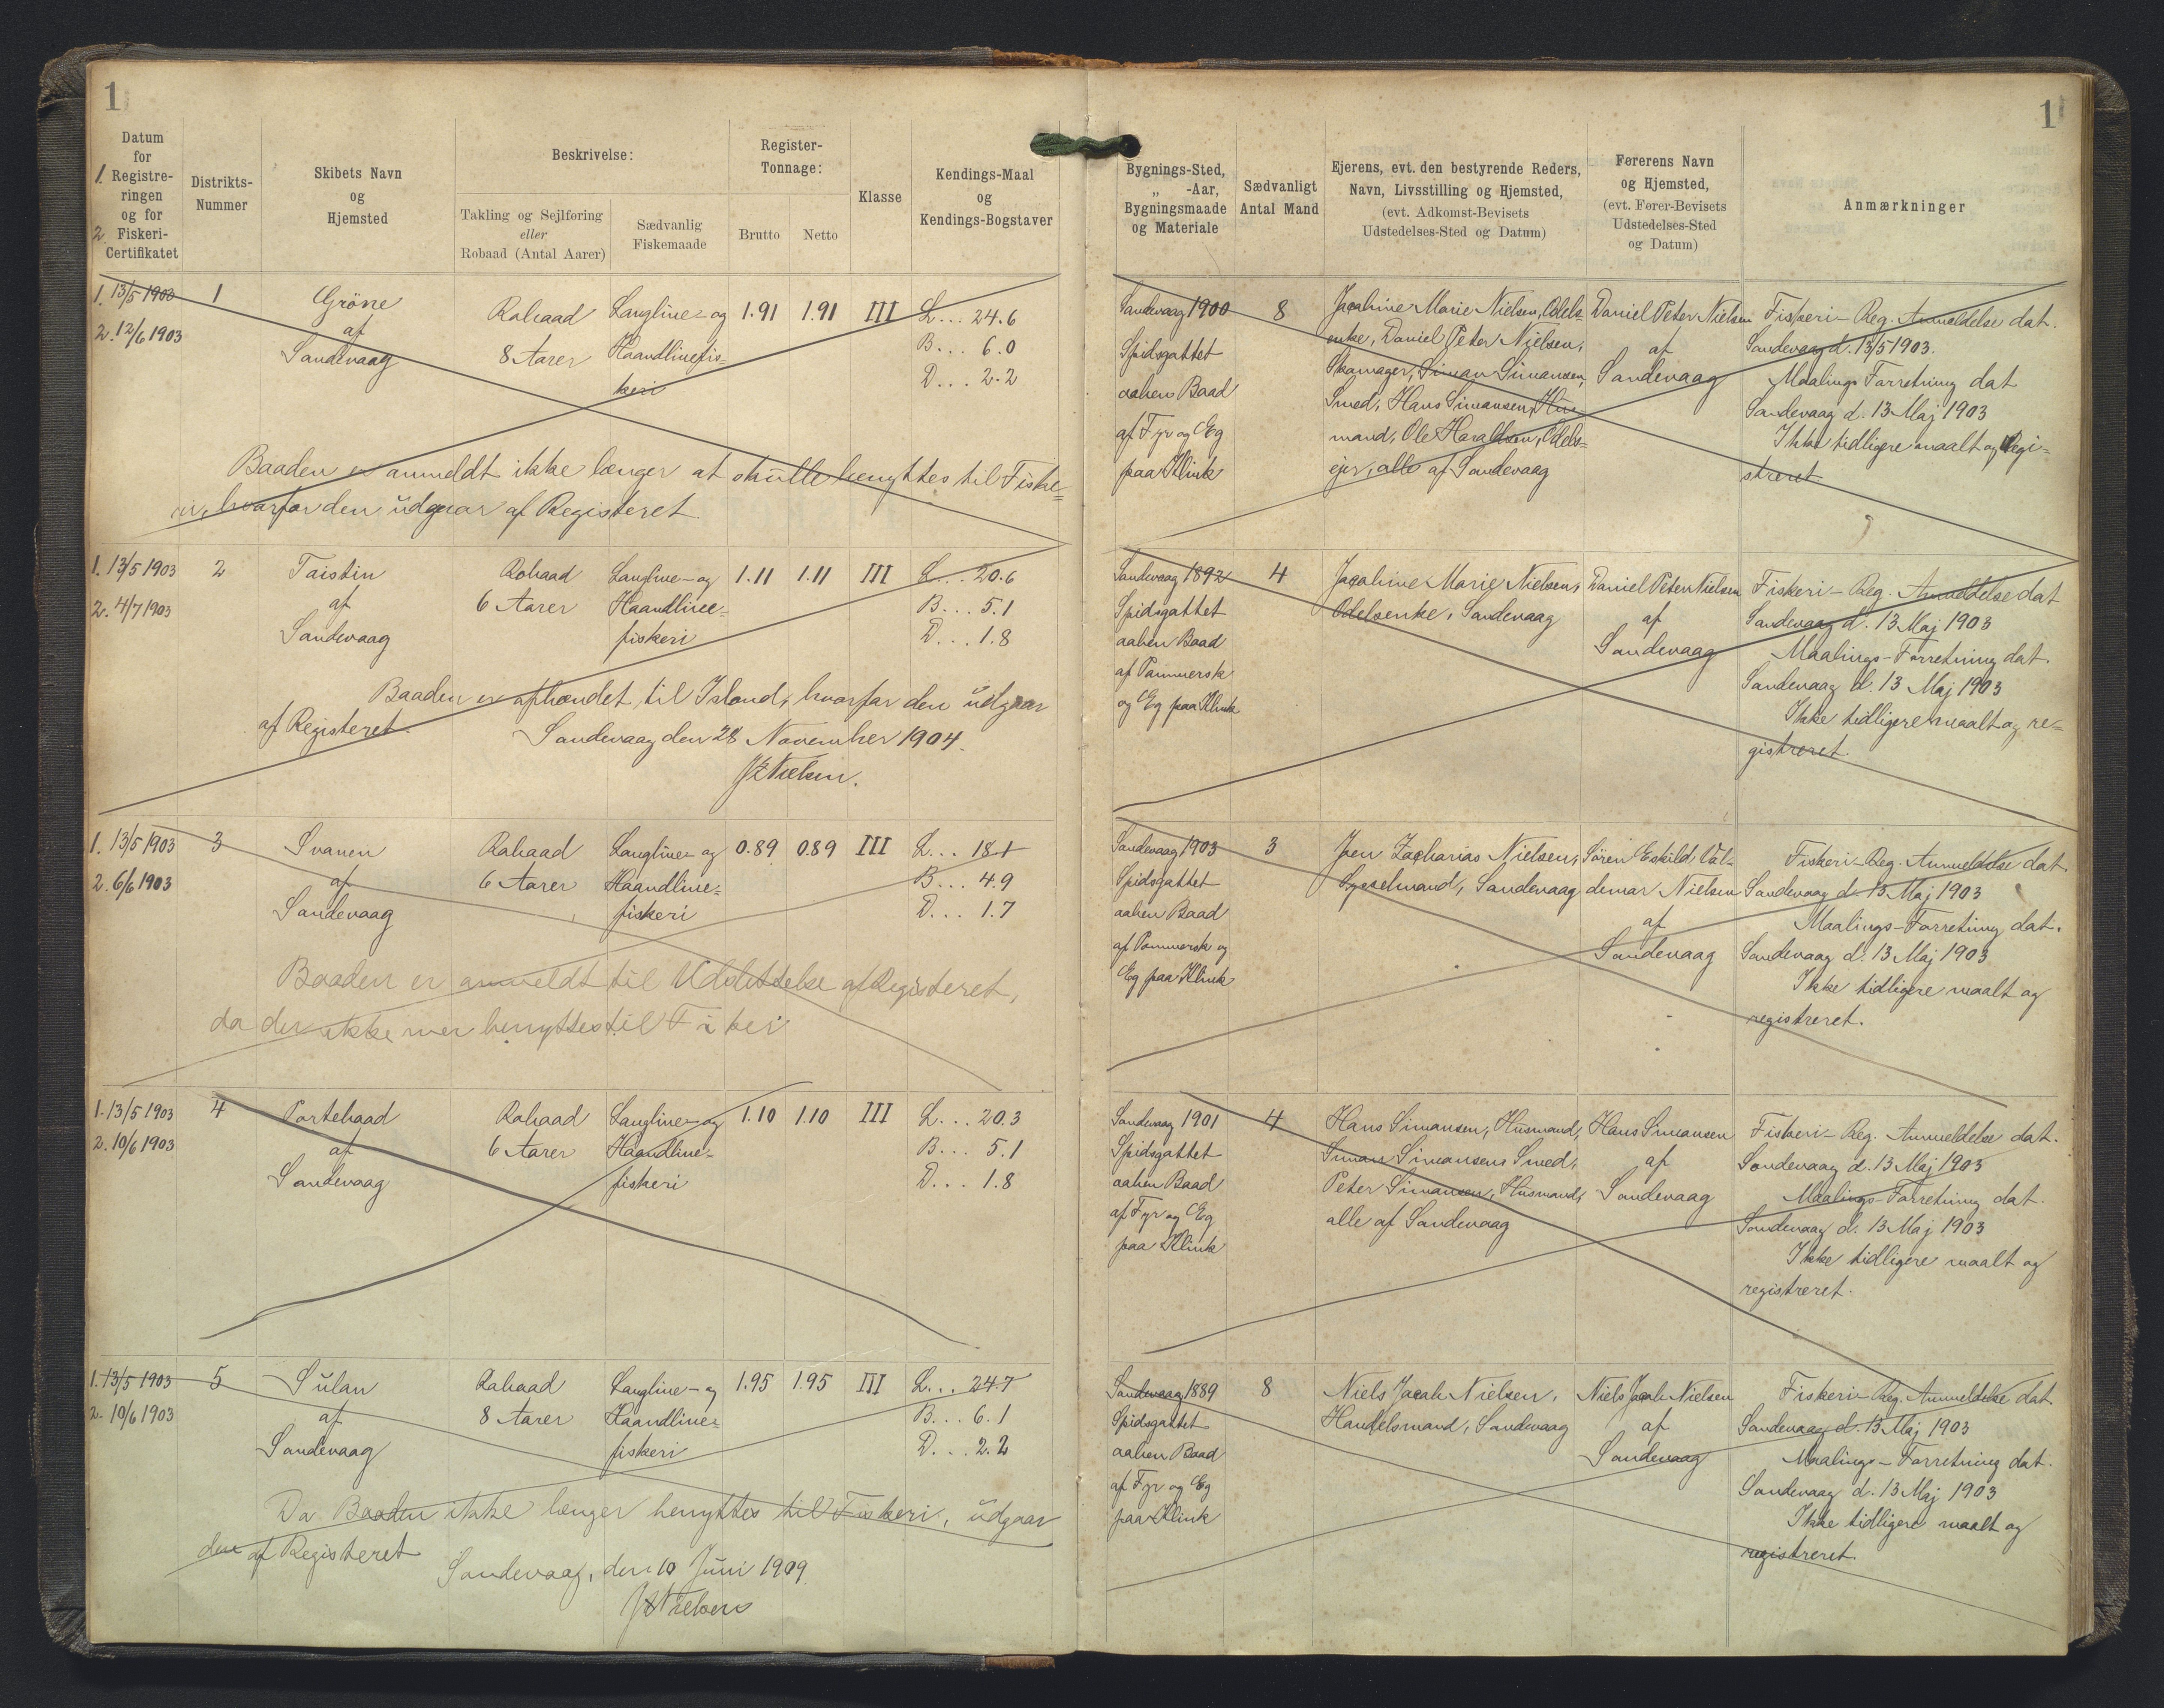 1
1
Datum
for
1. Registre-
ringen
og for
2. Fiskeri-
Certifikatet
Distrikts-
Nummer
Skibets Navn
og
Hjemsted
Beskrivelse:
Takling og Sejlføring
eller
Robaad (Antal Aarer)
Sædvanlig
Fiskemaade
Register-
Tonnage:
Brutto
Netto
Klasse
Kendings-Maal
og
Kendings-Bogstaver
Bygnings-Sted,
„ -Aar,
Bygningsmaade
og Materiale
Sædvanligt
Antal Mand
Ejerens, evt. den bestyrende Reders,
Navn, Livsstilling og Hjemsted,
(evt. Adkomst-Bevisets
Udstedelses-Sted og Datum)
Førerens Navn
og Hjemsted,
(evt. Fører-Bevisets
Udstedelses-Sted
og Datum)
Anmærkninger
1. 13/5 1903
2. 12/6 1903
1
Gröne
af
Sandevaag
Robaad
8 Aarer
Langline- og
Haandlinefis-
keri
1.91
1.91
III
L... 24.6
B... 6.0
D... 2.2
Baaden er anmeldt ikke længer at skulle benyttes til Fiske=
ri, hvorfor den udgaar af Registeret.
Sandevaag 1900
Spidsgattet
aaben Baad
af Fyr og Eg
paa Klink
8
Jacobine Marie Nielsen, Odels-
enke, Daniel Peter Nielsen,
Skomager, Simon Simonsen,
Smed, Hans Simonsen, Hus-
mand, Ole Haraldsen, Odels-
ejer, alle af Sandevaag
Daniel Peter Nielsen
af
Sandevaag
Fiskeri-Reg. Anmeldelse dat.
Sandevaag d. 13/5 1903.
Maalings Forretning dat
Sandevaag d. 13 Maj 1903
Ikke tidligere maalt og Regi-
streret
1. 13/5 1903
2. 4/7 1903
2
Taistin
af
Sandevaag
Robaad
6 Aarer
Langline- og
Haandline-
fiskeri
1.11
1.11
III
L... 20.6
B... 5.1
D... 1.8
Baaden er afhændet til Island, hvorfor den udgaar
af Registeret.
Sandevaag den 28 November 1904.
JZNielsen.
Sandevaag 1892
Spidsgattet
aaben Baad
af Pommersk
og Eg paa Klink
4
Jacobine Marie Nielsen,
Odelsenke, Sandevaag
Daniel Peter Nielsen
af
Sandevaag
Fiskeri-Reg. Anmeldelse dat
Sandevaag d. 13 Maj 1903
Maalings-Forretning dat.
Sandevaag d. 13 Maj 1903
Ikke tidligere maalt og re-
gistreret.
1. 13/5 1903
2. 6/6 1903
3
Svanen
af
Sandevaag
Robaad
6 Aarer
Langline- og
Haandline-
fiskeri
0.89
0.89
III
L... 18.1
B... 4.9
D... 1.7
Baaden er anmeldt til Udslettelse af Registeret,
da den ikke mer benyttes til Fiskeri
Sandevaag 1903
Spidsgattet
aaben Baad
af Pommersk og
Eg paa Klink
3
Joen Zacharias Nielsen,
Sysselmand, Sandevaag
Sören Eskild Val-
demar Nielsen
af
Sandevaag
Fiskeri-Reg. Anmeldelse dat.
Sandevaag d. 13 Maj 1903
Maalings-Forretning dat.
Sandevaag d. 13 Maj 1903
Ikke tidligere maalt og
registreret.
1. 13/5 1903
2. 10/6 1903
4
Portebaad
af
Sandevaag
Robaad
6 Aarer
Langline- og
Haandline-
fiskeri
1.10
1.10
III
L... 20.3
B... 5.1
D... 1.8
Sandevaag 1901
Spidsgattet
aaben Baad
af Fyr og Eg
paa Klink
4
Hans Simonsen, Husmand,
Simon Simonsen, Smed,
Peter Simonsen, Husmand,
alle af Sandevaag
Hans Simonsen
af
Sandevaag
Fiskeri-Reg. Anmeldelse dat.
Sandevaag d. 13 Maj 1903
Maalings-Forretning dat.
Sandevaag d. 13 Maj 1903
Ikke tidligere maalt og
registreret.
1. 13/5 1903
2. 10/6 1903
5
Sulan
af
Sandevaag
Robaad
8 Aarer
Langline- og
Haandline-
fiskeri
1.95
1.95
III
L... 24.7
B... 6.1
D... 2.2
Da Baaden ikke længer benyttes til Fiskeri, udgaar
den af Registeret
Sandevaag, den 10 Juni 1909
JZNielsen
Sandevaag 1889
Spidsgattet
aaben Baad
af Fyr og Eg
paa Klink
8
Niels Jacob Nielsen,
Handelsmand, Sandevaag
Niels Jacob Nielsen
af
Sandevaag
Fiskeri-Reg. Anmeldelse dat
Sandevaag d. 13 Maj 1903
Maalings-Forretning dat.
Sandevaag d. 13 Maj 1903
Ikke tidligere maalt og
registreret.